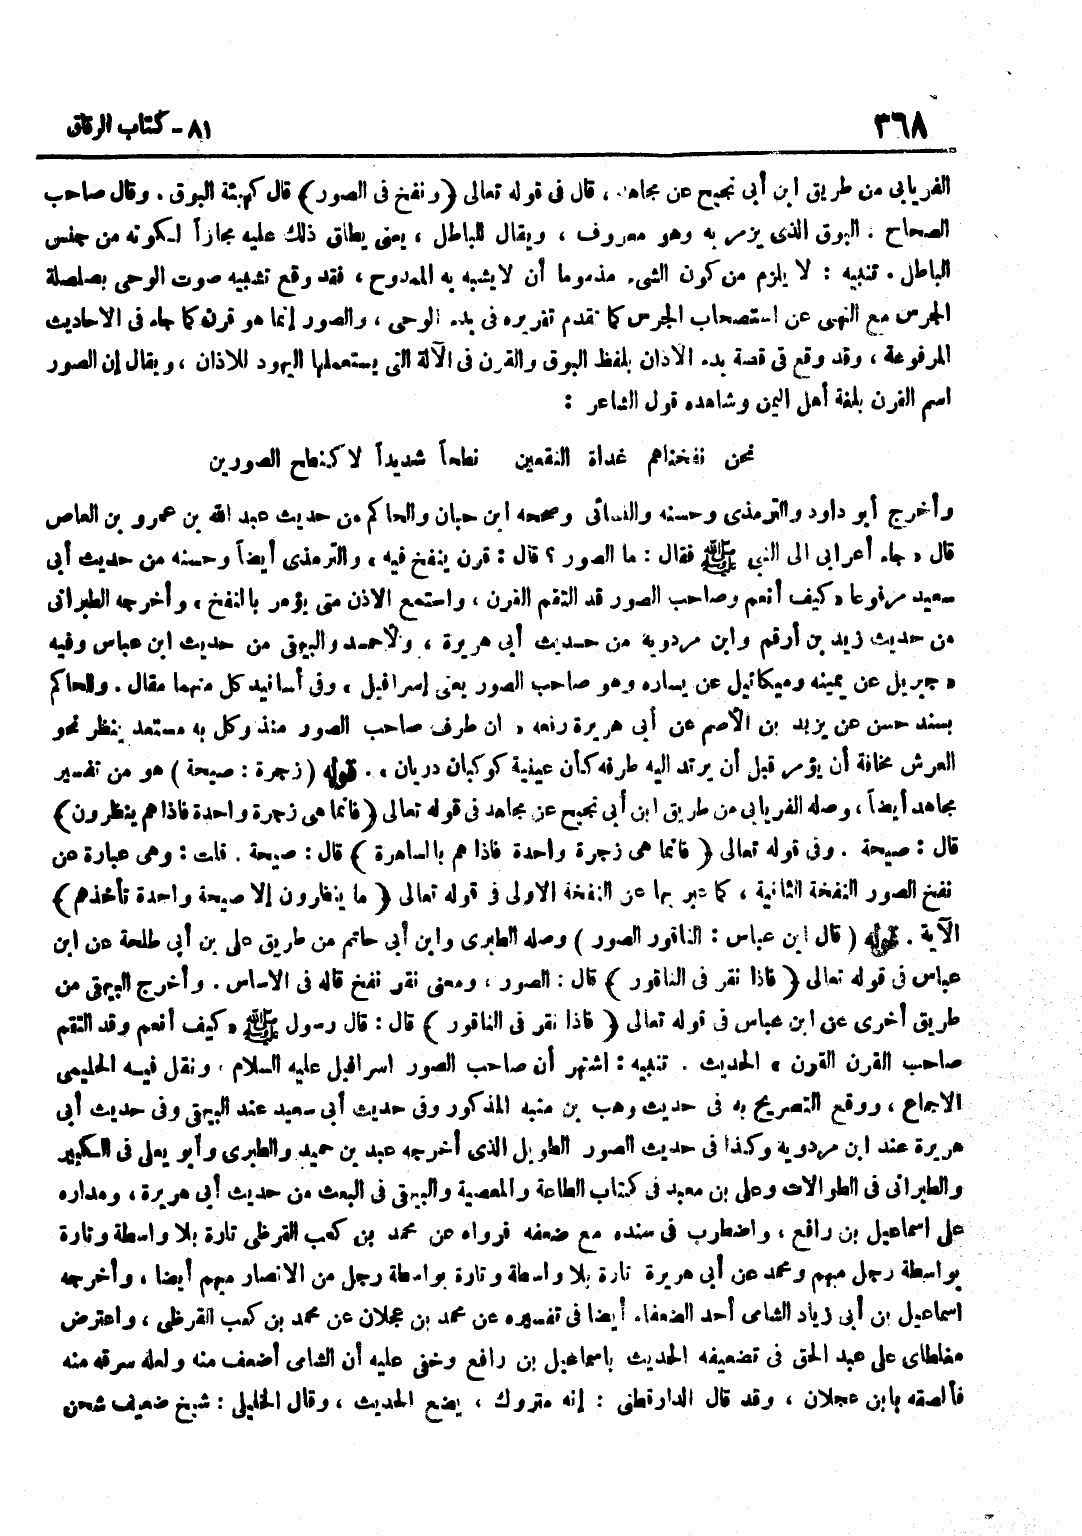 ٣٦٨
٨١ - كتاب الرقاق
الفريابى من طريق ابن أبى نجيح عن مجاهد ، قال فى قوله تعالى ﴿ ونفخ فى الصور ﴾ قال كهيئة البوق . وقال صاحب
الصحاح : البوق الذى يزمر به وهو معروف ، ويقال للباطل ، يعنى يطلق ذلك عليه مجازاً لكونه من جنس
الباطل . تنبيه : لا يلزم من كون الشىء مذموما أن لا يشبه به الممدوح ، فقد وقع تشبيه صوت الوحى بصلصلة
الجرس مع النهى عن استصحاب الجرس كما تقدم تقريره فى بدء الوحى ، والصور إنما هو قرن كما جاء فى الاحاديث
المرفوعة ، وقد وقع فى قصة بدء الأذان بلفظ البوق والقرن فى الآلة التى يستعملها اليهود للاذان ، ويقال إن الصور
اسم القرن بلغة أهل اليمن وشاهده قول الشاعر :
نحن نفخناهم غداة النقعين نطحاً شديداً لا كنطح الصورين
وأخرج أبو داود والترمذى وحسنه والنسائى وصححه ابن حبان والحاكم من حديث عبد الله بن عمرو بن العاص
قال « جاء أعرابى الى النبى ﷺ فقال : ما الصور ؟ قال : قرن ينفخ فيه » والترمذى أيضاً وحسنه من حديث أبى
سعيد مرفوعا « كيف أنعم وصاحب الصور قد التقم القرن ، واستمع الاذن متى يؤمر بالنفخ » وأخرجه الطبرانى
من حديث زيد بن أرقم وابن مردويه من حديث أبى هريرة ، ولأحمد والبيهقى من حديث ابن عباس وفيه
« جبريل عن يمينه وميكائيل عن يساره وهو صاحب الصور يعنى إسرافيل » وفى أسانيد كل منهما مقال . وللحاكم
بسند حسن عن يزيد بن الأصم عن أبى هريرة رفعه « ان طرف صاحب الصور منذ وكل به مستعد ينظر نحو
العرش مخافة أن يؤمر قبل أن يرتد اليه طرفه كأن عينيه كوكبان دريان » . قوله ( زجرة : صيحة ) هو من تفسير
مجاهد أيضاً ، وصله الفريابى من طريق ابن أبى نجيح عن مجاهد فى قوله تعالى ﴿ فانما هى زجرة واحدة فاذا هم ينظرون ﴾
قال : صيحة . وفى قوله تعالى ﴿ فانما هى زجرة واحدة فاذا هم بالساهرة ﴾ قال : صيحة . قلت : وهى عبارة عن
نفخ الصور النفخة الثانية ، كما عبر بها عن النفخة الاولى فى قوله تعالى ﴿ ما ينظرون إلا صيحة واحدة تأخذهم ﴾
الآية . قوله ( قال ابن عباس : الناقور الصور ) وصله الطبرى وابن أبى حاتم من طريق على بن أبى طلحة عن ابن
عباس فى قوله تعالى ﴿ فاذا نقر فى الناقور ﴾ قال : الصور ، ومعنى نقر نفخ قاله فى الاساس . وأخرج البيهقى من
طريق أخرى عن ابن عباس فى قوله تعالى ﴿ فاذا نقر فى الناقور ﴾ قال : قال رسول ﷺ « كيف أنعم وقد التقم
صاحب القرن القرن » الحديث . تنبيه : اشتهر أن صاحب الصور اسرافيل عليه السلام ، ونقل فيه الحليمى
الاجماع ، ووقع التصريح به فى حديث وهب بن منبه المذكور وفى حديث أبى سعيد عند البيهقى وفى حديث أبى
هريرة عند ابن مردويه وكذا فى حديث الصور الطويل الذى أخرجه عبد بن حميد والطبرى وأبو يعلى فى الكبير
والطبرانى فى الطوالات وعلى بن معبد فى كتاب الطاعة والمعصية والبيهقى فى البعث من حديث أبى هريرة ، ومداره
على اسماعيل بن رافع ، واضطرب فى سنده مع ضعفه فرواه عن محمد بن كعب القرظى تارة بلا واسطة وتارة
بواسطة رجل مبهم ومحمد عن أبى هريرة تارة بلا واسطة وتارة بواسطة رجل من الانصار مبهم أيضا ، وأخرجه
اسماعيل بن أبى زياد الشامى أحد الضعفاء أيضا فى تفسيره عن محمد بن عجلان عن محمد بن كعب القرظى ، واعترض
مغلطاى على عبد الحق فى تضعيفه الحديث باسماعيل بن رافع وخفى عليه أن الشامى أضعف منه ولعله سرقه منه
فألصقه بابن عجلان ، وقد قال الدارقطنى : إنه متروك ، يضع الحديث ، وقال الخليلى : شيخ ضعيف شحن